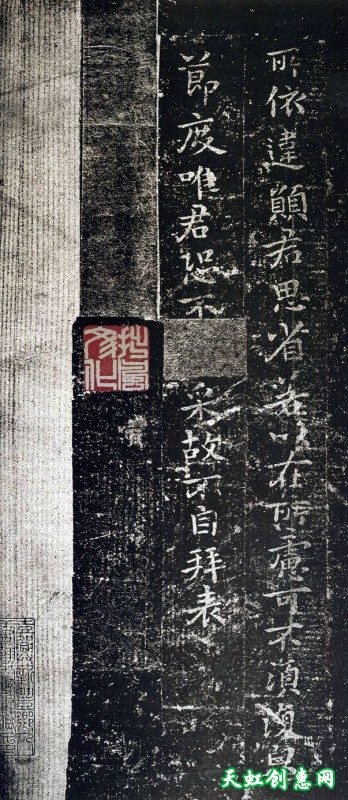 所依違願君思省若以在所慮可不須復白
節度唯君恐不采故不自拜表
天虹创惠网